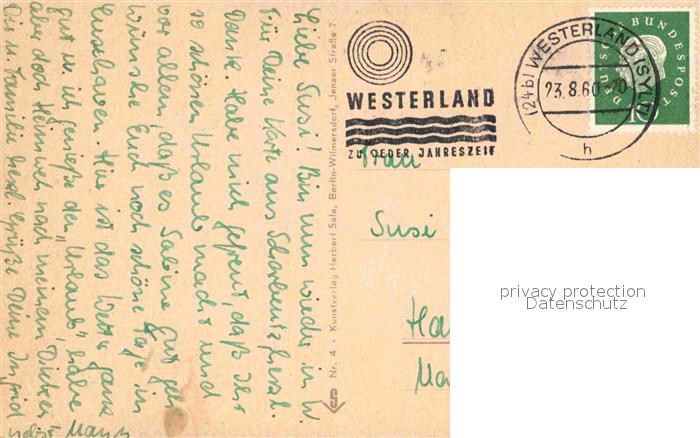 Liebe Susi! Bin nun wieder in W.
Für Deine Karte aus
Dank. Habe mich gefreut, daß Ihr
so schönen Urlaub macht und
vor allem, daß es Sabine gut geht
Wünsche Euch noch schöne Tage in
Cuxhaven. Hier ist das Wetter ganz
gut u. ich genieße den "Urlaub", habe
aber doch Heimweh nach meinem Dicken
Dir u. Familie herzl. Grüße Deine Ingrid
nebst Mann
Nr. 4 · Kunstverlag Herbert Sala, Berlin-Wilmersdorf, Jenaer Straße 7
WESTERLAND
ZU JEDER JAHRESZEIT
(24b) WESTERLAND (SYLT)
23.8.60-20
h
DEUTSCHE BUNDESPOST
10
Frau
Susi
Ha
privacy protection
Datenschutz